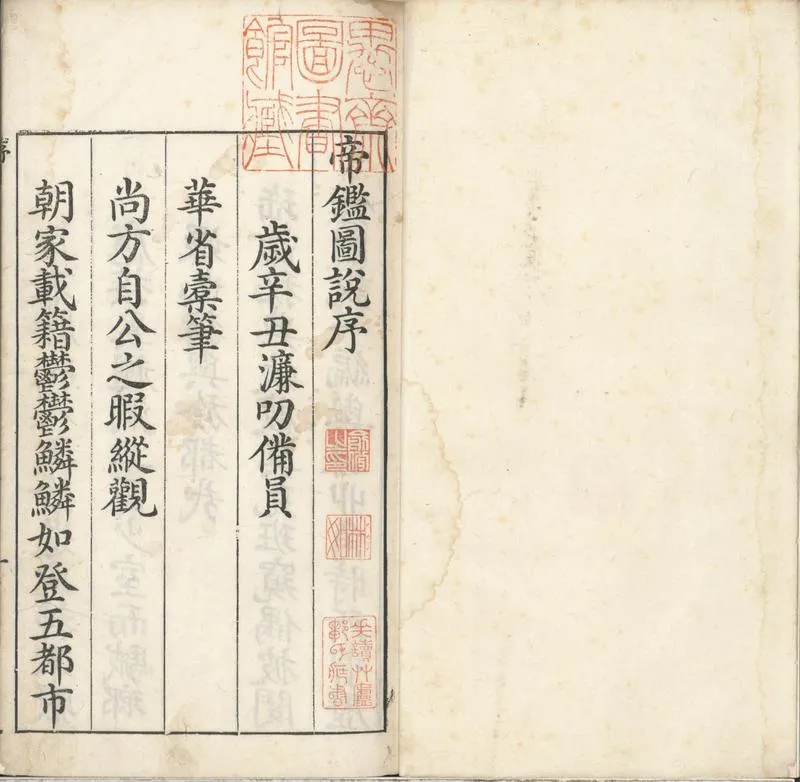 帝鑑圖說序
歲辛丑濂叨備員
華省橐筆
尚方自公之暇縱觀
朝家載籍鬱鬱鱗鱗如登五都市
愚齋圖書館藏
序